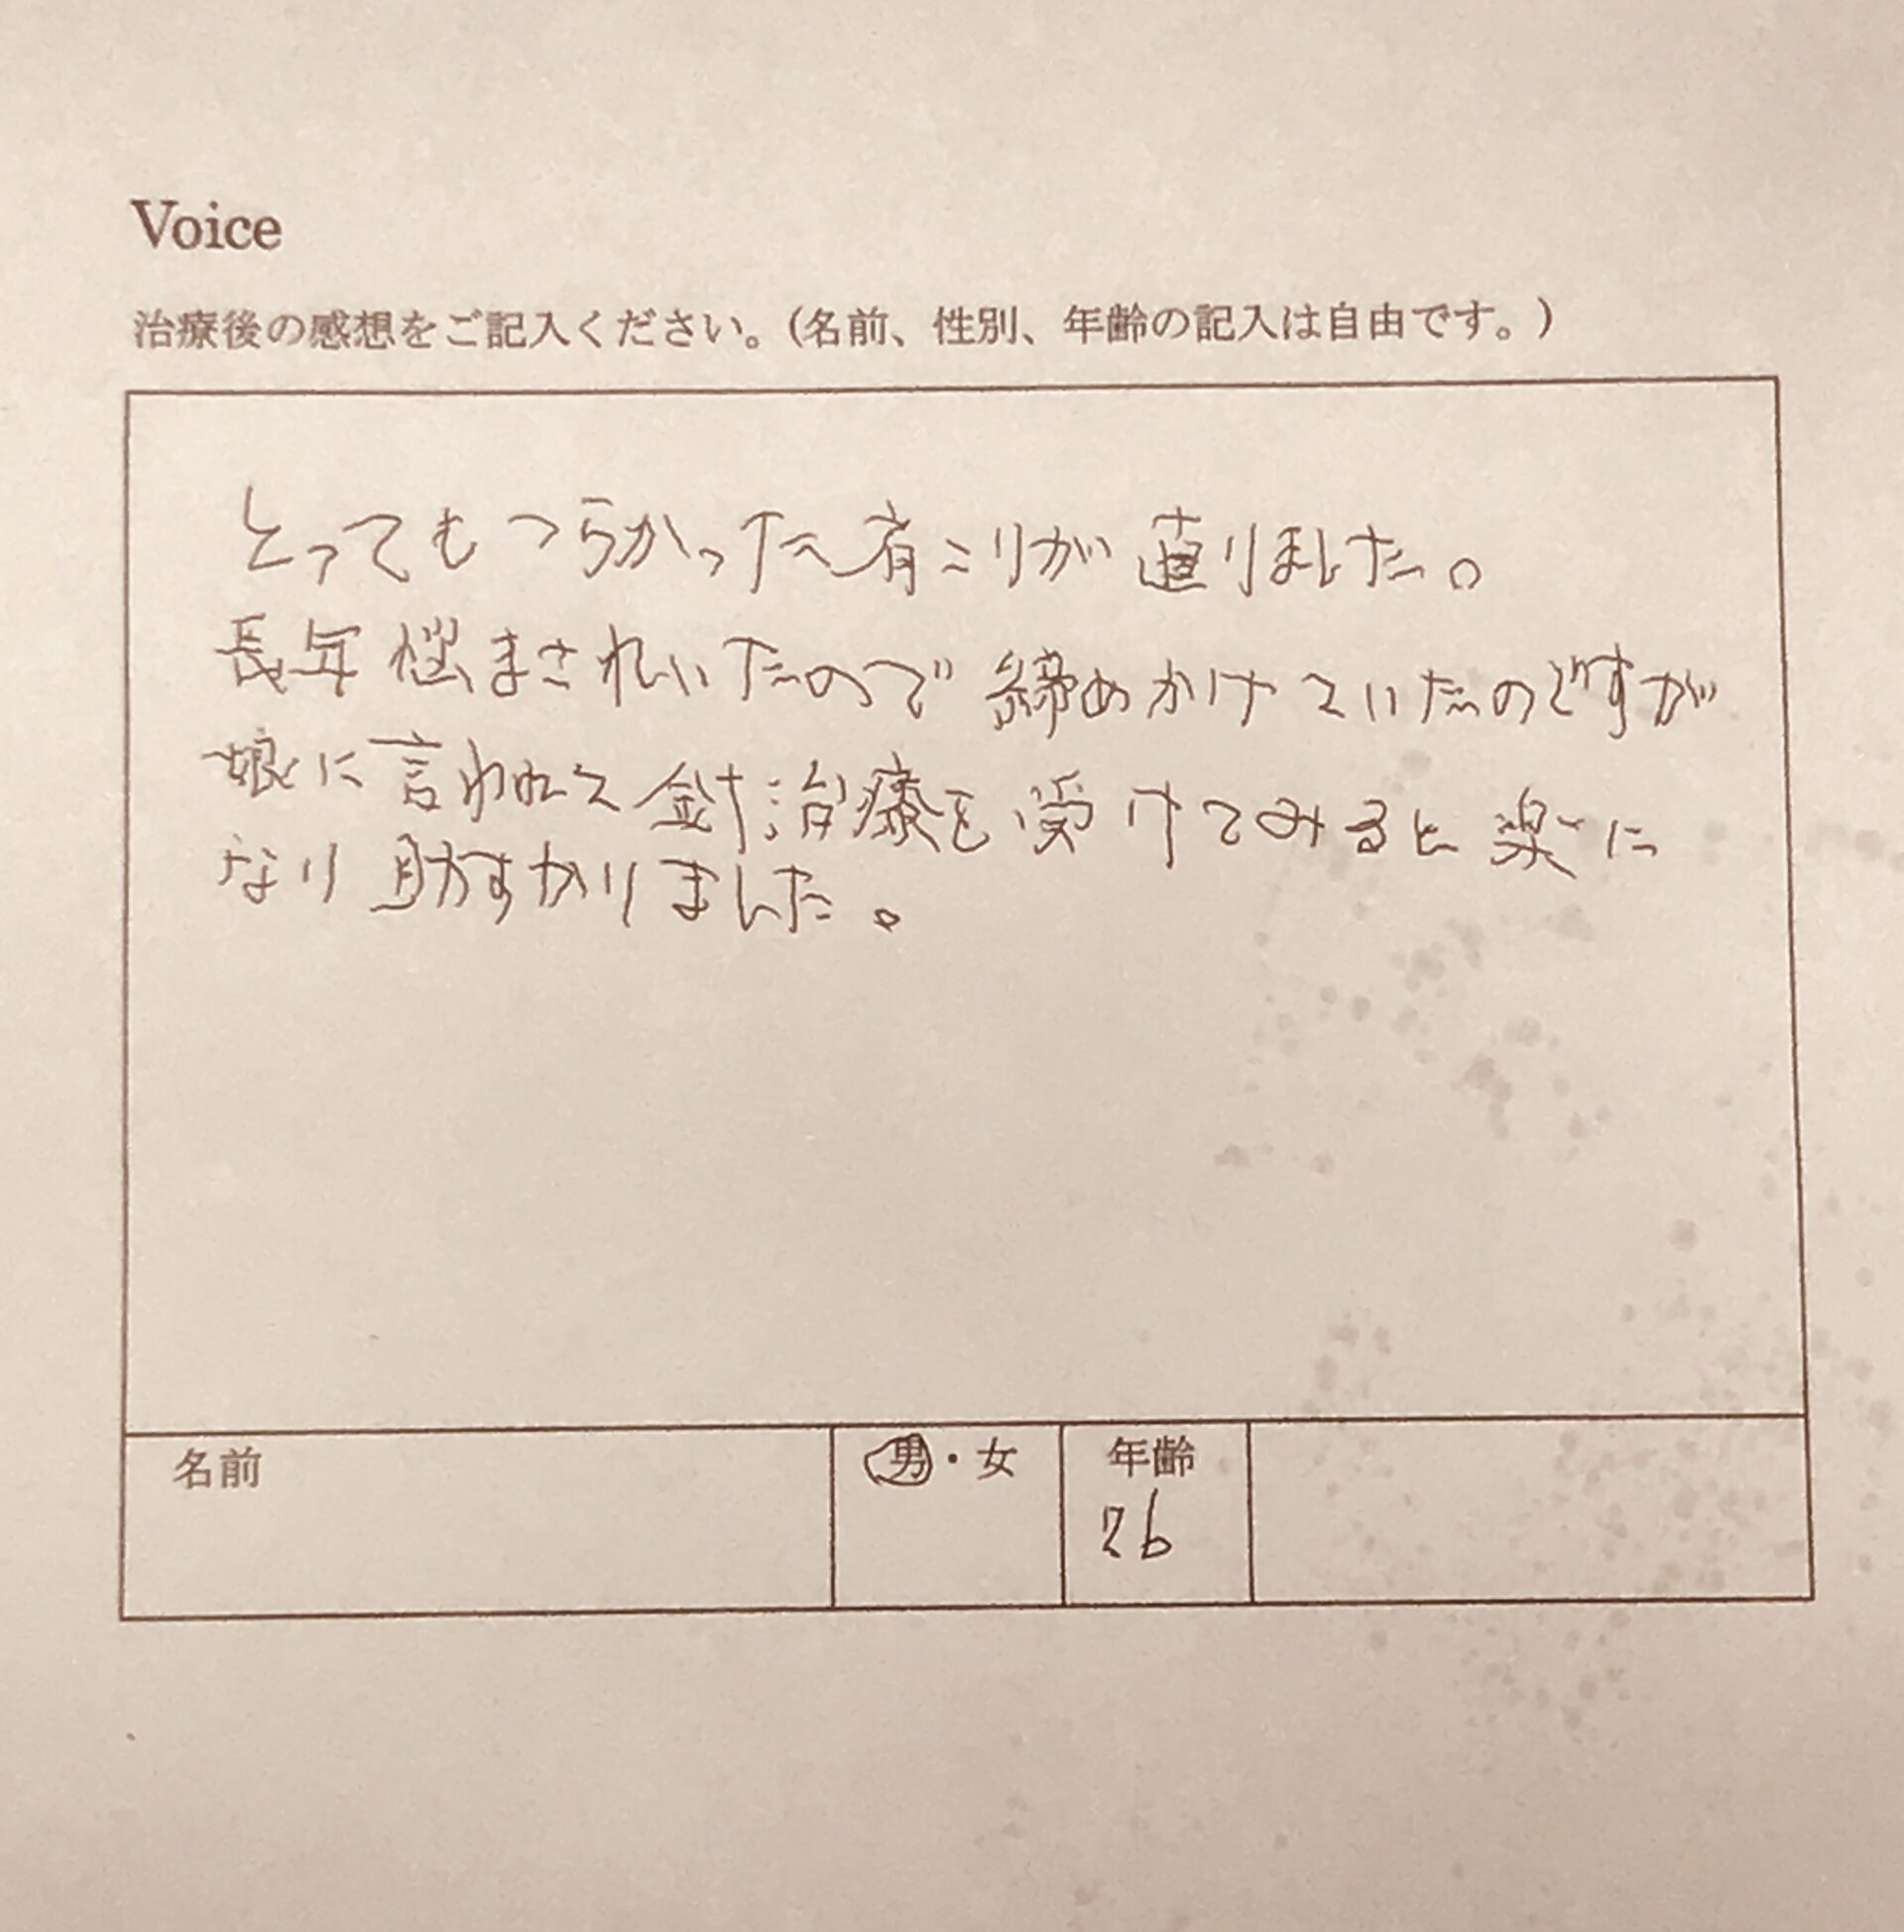 Voice
治療後の感想をご記入ください。(名前、性別、年齢の記入は自由です。)
とってもつらかった肩こりが直りました。
長年悩まされいたので締めかけていたのですが
娘に言われて針治療を受けてみると楽に
なり助すかりました。
名前 男・女 年齢
76